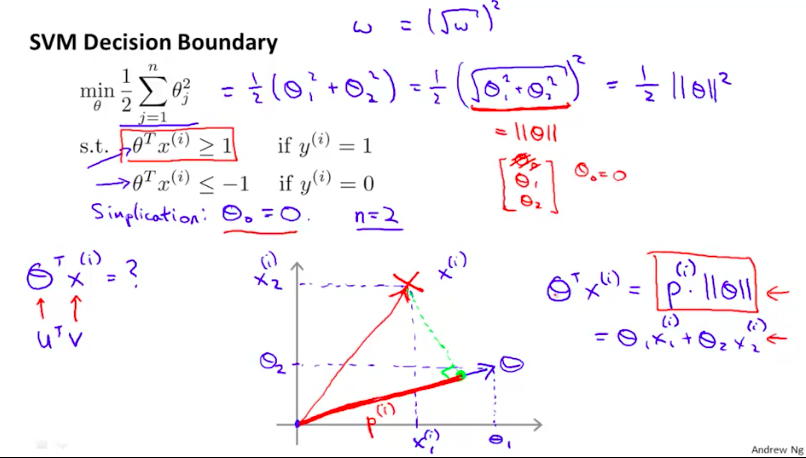 ω = (√ω)²
SVM Decision Boundary
min θ 1/2 Σ j=1 n θ_j² = 1/2 (θ₁² + θ₂²) = 1/2 (√θ₁² + θ₂²)² = 1/2 ||θ||²
= ||θ||
s.t. θᵀx⁽ⁱ⁾ ≥ 1 if y⁽ⁱ⁾ = 1
θᵀx⁽ⁱ⁾ ≤ −1 if y⁽ⁱ⁾ = 0
[θ₀ θ₁ θ₂] θ₀ = 0
Simplication: θ₀ = 0. n=2
θᵀx⁽ⁱ⁾ = ?
uᵀv
x₂⁽ⁱ⁾
x⁽ⁱ⁾
θ₂
θ
p⁽ⁱ⁾
x₁⁽ⁱ⁾
θ₁
θᵀx⁽ⁱ⁾ = p⁽ⁱ⁾ · ||θ|| ←
= θ₁x₁⁽ⁱ⁾ + θ₂x₂⁽ⁱ⁾ ←
Andrew Ng